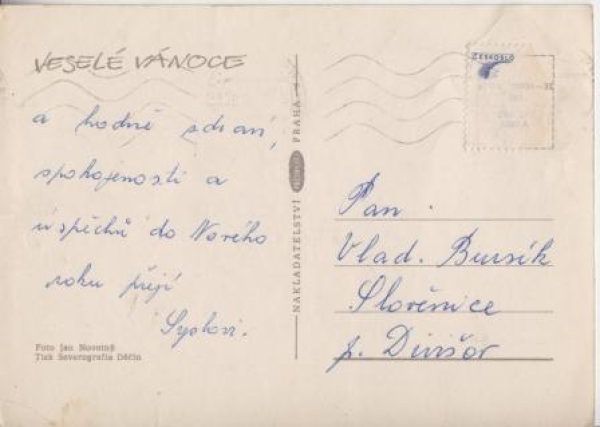 VESELÉ VÁNOCE
a hodně zdraví,
spokojenosti a
úspěchů do Nového
roku přejí
Foto Jan Novotný
Tisk Severografia Děčín
NAKLADATELSTVÍ
PRAHA
ČESKOSLO
Pan
Vlad. Bursík
Slověnice
p. Divišov